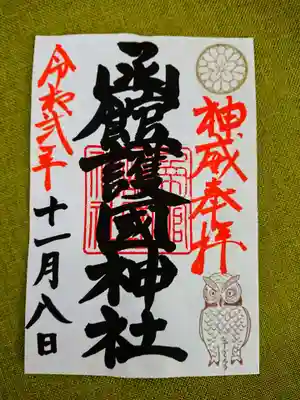 神威奉拝
函館護國神社
令和弐年
十一月八日